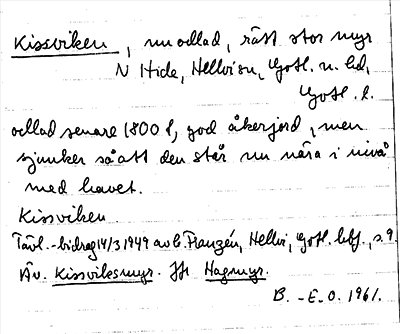 Kissviken, nu odlad, rätt stor myr
N Hide, Hellvi sn, Gotl. n. hd,
Gotl. l.
odlad senare 1800 t, god åkerjord, men
sjunker så att den står nu nära i nivå
med havet.
Kissviken
Tävl.-bidrag 14/3 1949 av G. Franzén, Hellvi, Gotl. s. 9.
Äv. Kissviksmyr. Jfr Hagmyr.
B.-E. O. 1961.